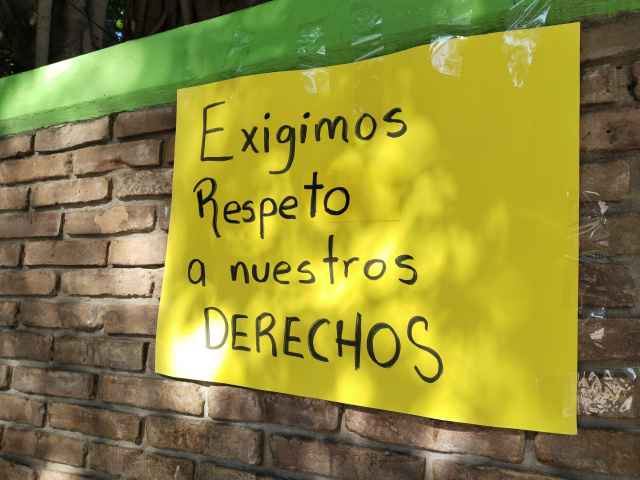 Exigimos
Respeto
a nuestros
DERECHOS